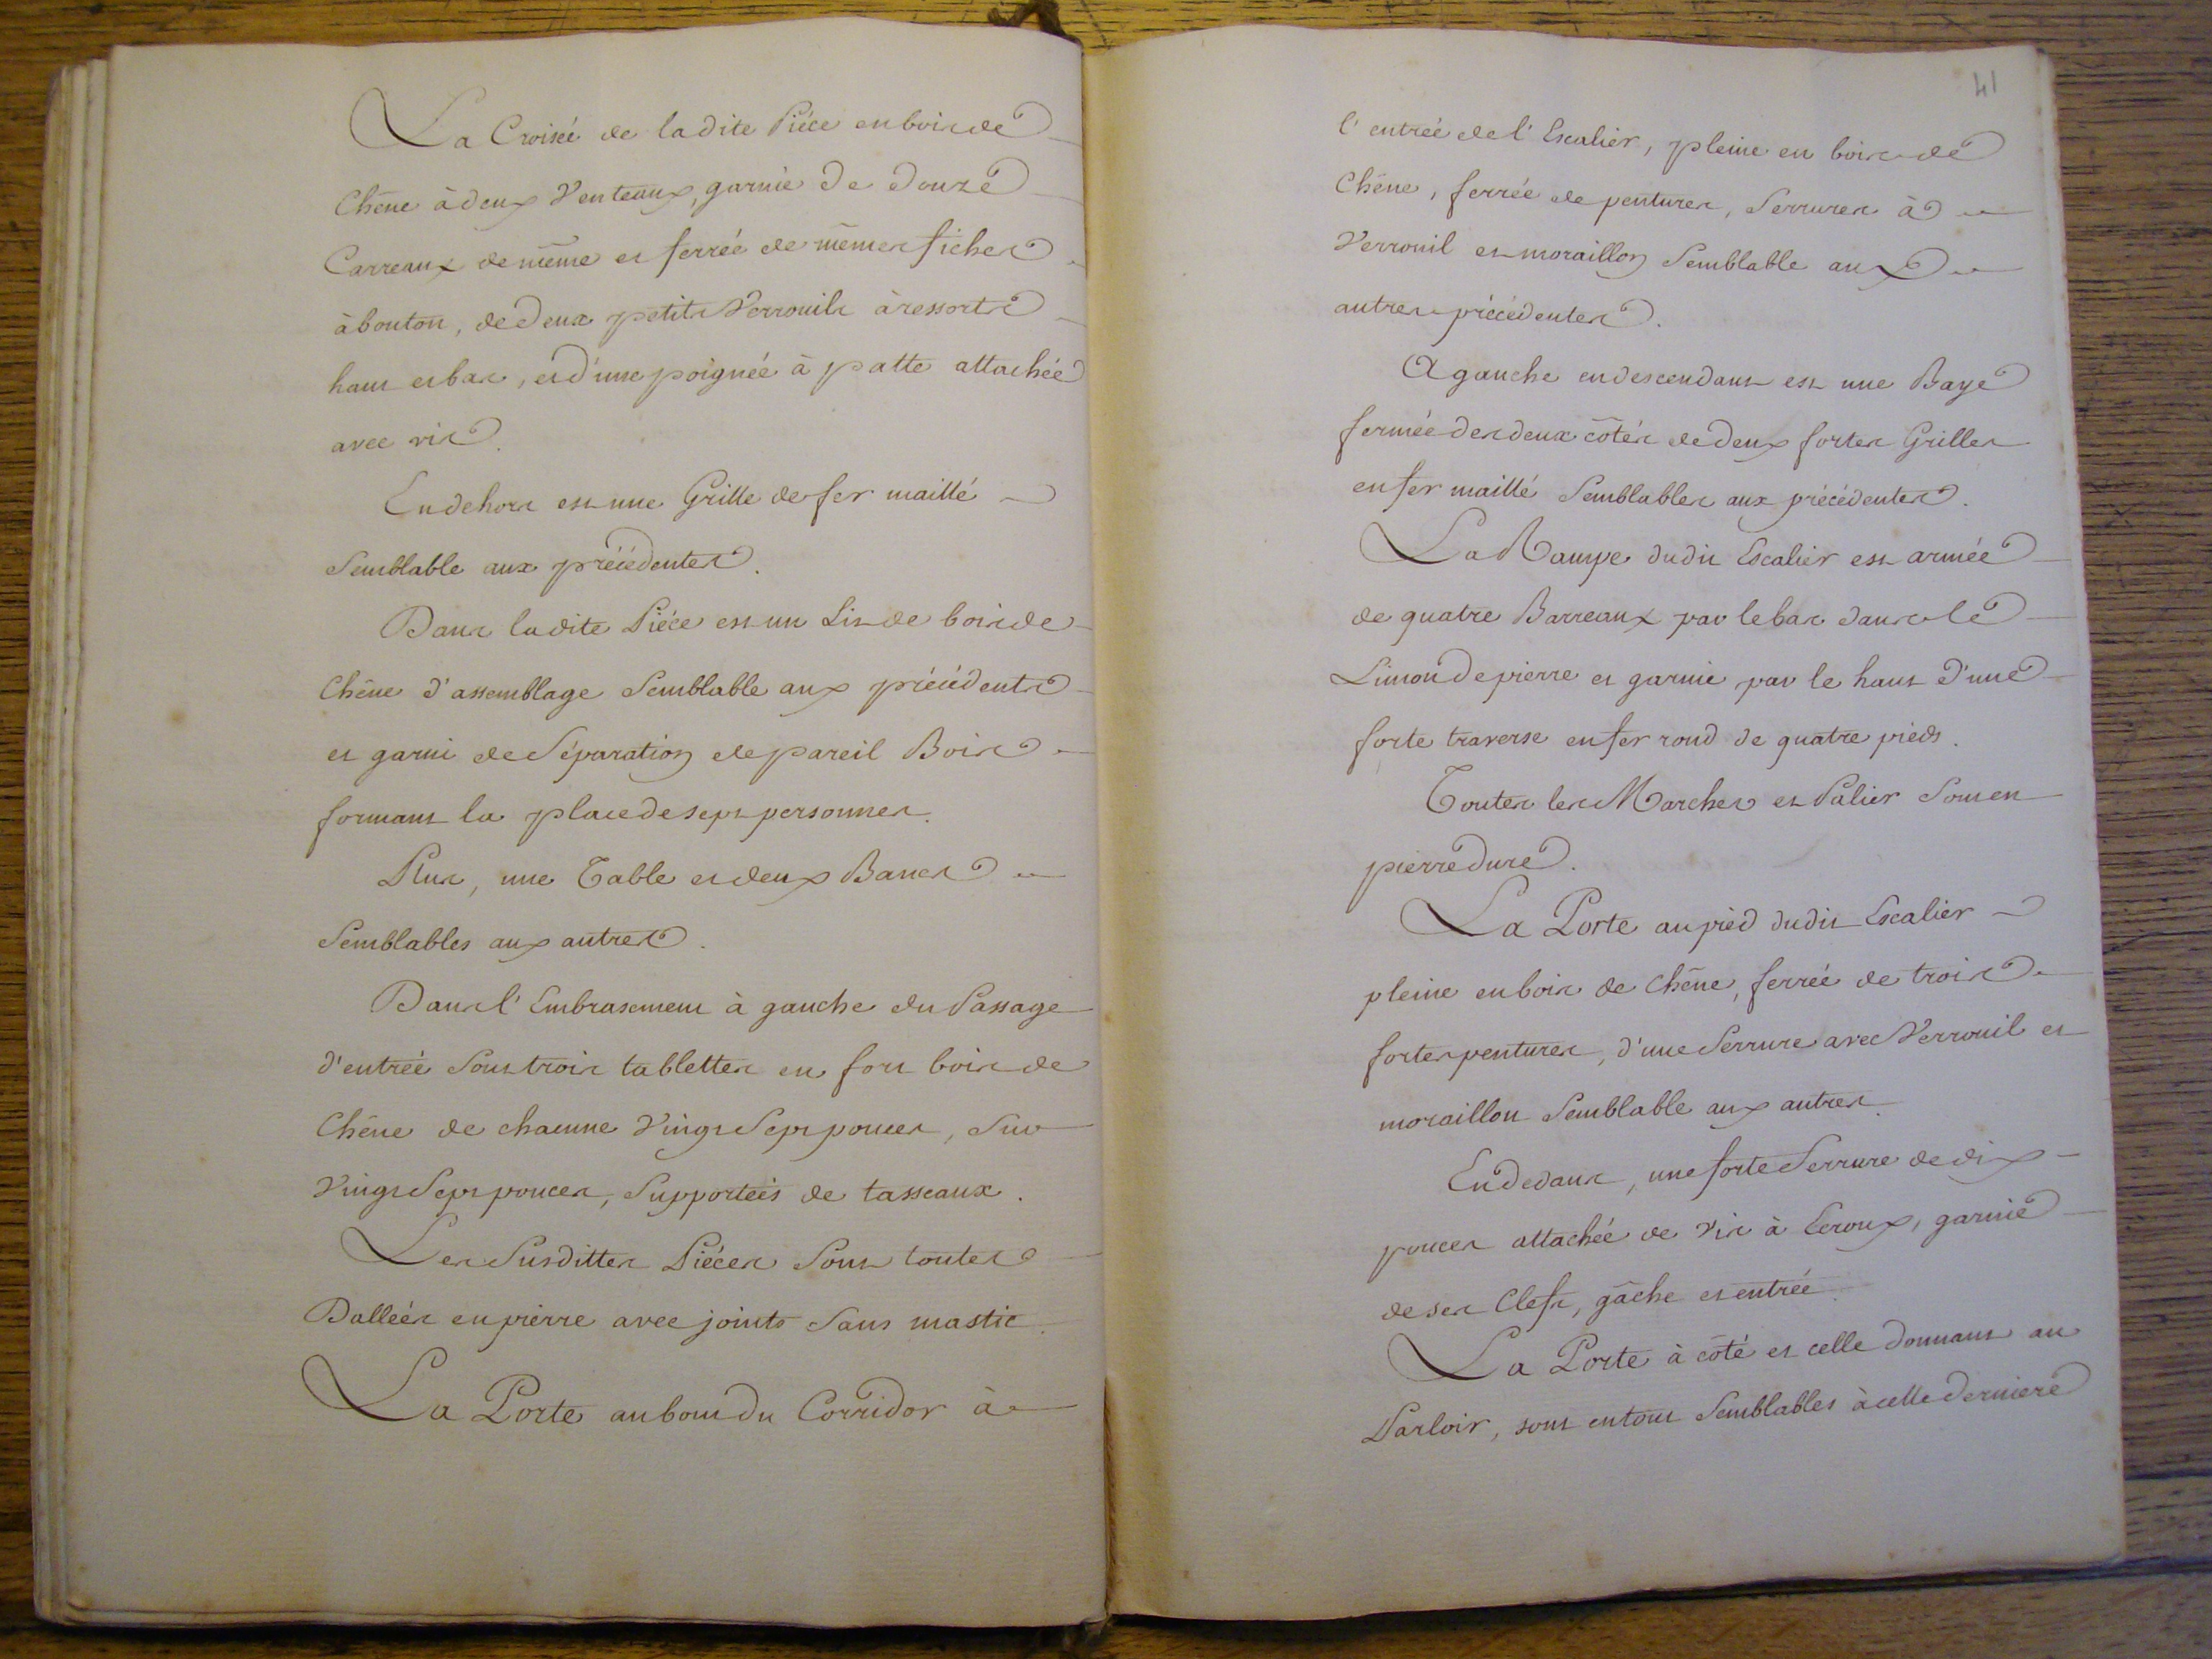 La Croisée de ladite Piéce en bois de
Chêne à deux Venteaux, garnie de douze
Carreaux de même et ferrée de mêmes fiches
à bouton, de deux petits Verrouils à ressorts
haut et bas, et d'une poignée à patte attachée
avec vis.
En dehors est une Grille de fer maillé
Semblable aux précédentes.
Dans ladite Piéce est un Lit de bois de
Chêne d'assemblage Semblable aux précédents
et garni de Séparation de pareil Bois
formant la place de sept personnes.
Plus, une Table et deux Bancs
Semblables aux autres.
Dans l'Embrasement à gauche du Passage
d'entrée Sont trois tablettes en fort bois de
Chêne de chacune Vingt Sept pouces, Sur
Vingt Sept pouces, Supportées de tasseaux.
Les Susdittes Piéces Sont toutes
Dallées en pierre avec joints Sans mastic.
La Porte au bout du Corridor à
41
l'entrée de l'Escalier, pleine en bois de
Chêne, ferrée de pentures, Serrures à
Verrouil et moraillon Semblable aux
autres précédentes.
A gauche en descendant est une Baye
fermée des deux côtés de deux fortes Grilles
en fer maillé Semblables aux précédentes.
La Rampe dudit Escalier est armée
de quatre Barreaux par le bas dans le
Limon de pierre et garnie par le haut d'une
forte traverse en fer rond de quatre pieds.
Toutes les Marches et Palier Sont en
pierre dure.
La Porte au pied dudit Escalier
pleine en bois de Chêne, ferrée de trois
fortes pentures, d'une Serrure avec Verrouil et
moraillon Semblable aux autres.
En dedans, une forte Serrure de dix
pouces attachée de Vis à Ecroux, garnie
de ses Clefs, gâche et entrée.
La Porte à côté et celle donnant au
Parloir, sont en tout Semblables à celle derniere